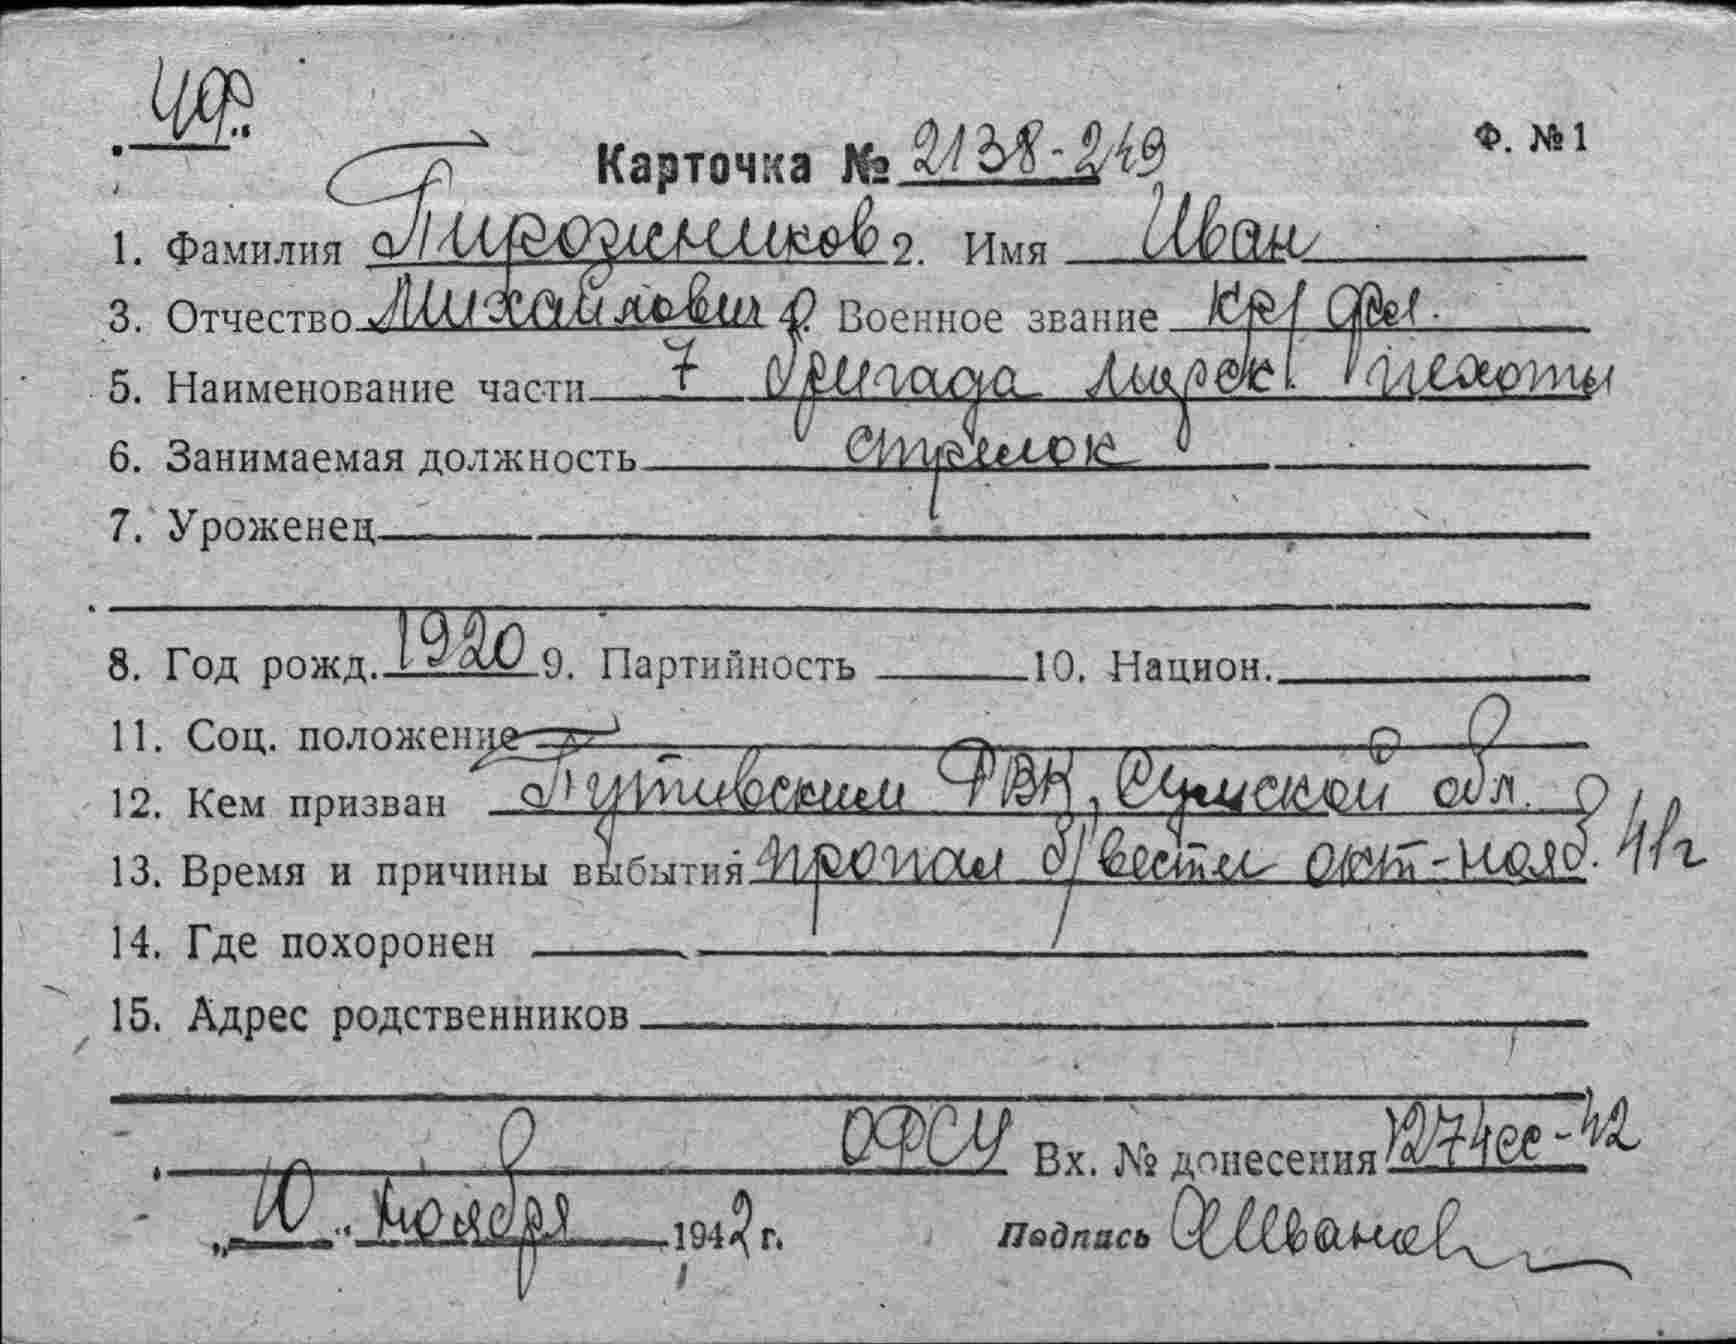 Ф. №1
Карточка № 2138-249
1. Фамилия Пирожников 2. Имя Иван
3. Отчество Михайлович 4. Военное звание кр/фл.
5. Наименование части 7 бригада морск. пехоты
6. Занимаемая должность стрелок
7. Уроженец
8. Год рожд. 1920 9. Партийность 10. Национ.
11. Соц. положение
12. Кем призван Путивским РВК, Сумской обл.
13. Время и причины выбытия пропал б/вести окт-нояб. 41г
14. Где похоронен
15. Адрес родственников
ОФСУ Вх. № донесения 1274сс-42
„10" ноября 1942 г. Подпись